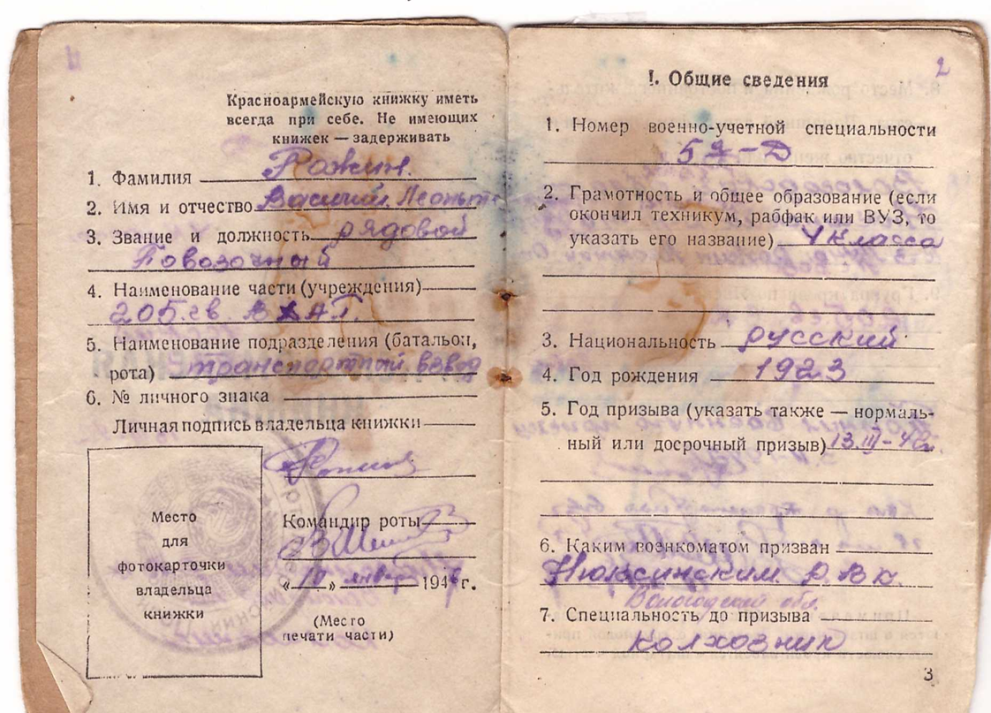 Красноармейскую книжку иметь
всегда при себе. Не имеющих
книжек — задерживать
1. Фамилия Рожин.
2. Имя и отчество Василий Леонт
3. Звание и должность рядовой
Повозочный
4. Наименование части (учреждения)
205 св.
5. Наименование подразделения (батальон,
рота) транспортный взвод
6. № личного знака
Личная подпись владельца книжки
Место
для
фотокарточки
владельца
книжки
Командир роты
«10» янв 194 г.
(Место
печати части)
2
I. Общие сведения
1. Номер военно-учетной специальности
2. Грамотность и общее образование (если
окончил техникум, рабфак или ВУЗ, то
указать его название) 4 класса
3. Национальность русский
4. Год рождения 1923
5. Год призыва (указать также — нормаль-
ный или досрочный призыв) 13.III-42г.
6. Каким военкоматом призван
Нюксинским Р.В.К.
Вологодской обл.
7. Специальность до призыва
колхозник
3